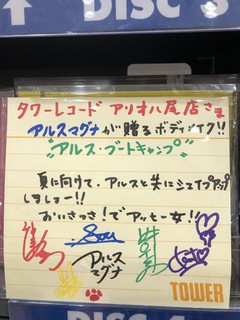 DISC 3
タワーレコード アリオ八尾店さま
アルスマグナが贈るボディメイク!!
"アルス・ブートキャンプ"
夏に向けて、アルスと共にシェイプアップ
しましょー!!
おいさっさ!でアッヒー女!!
アルス
マグナ
TOWER